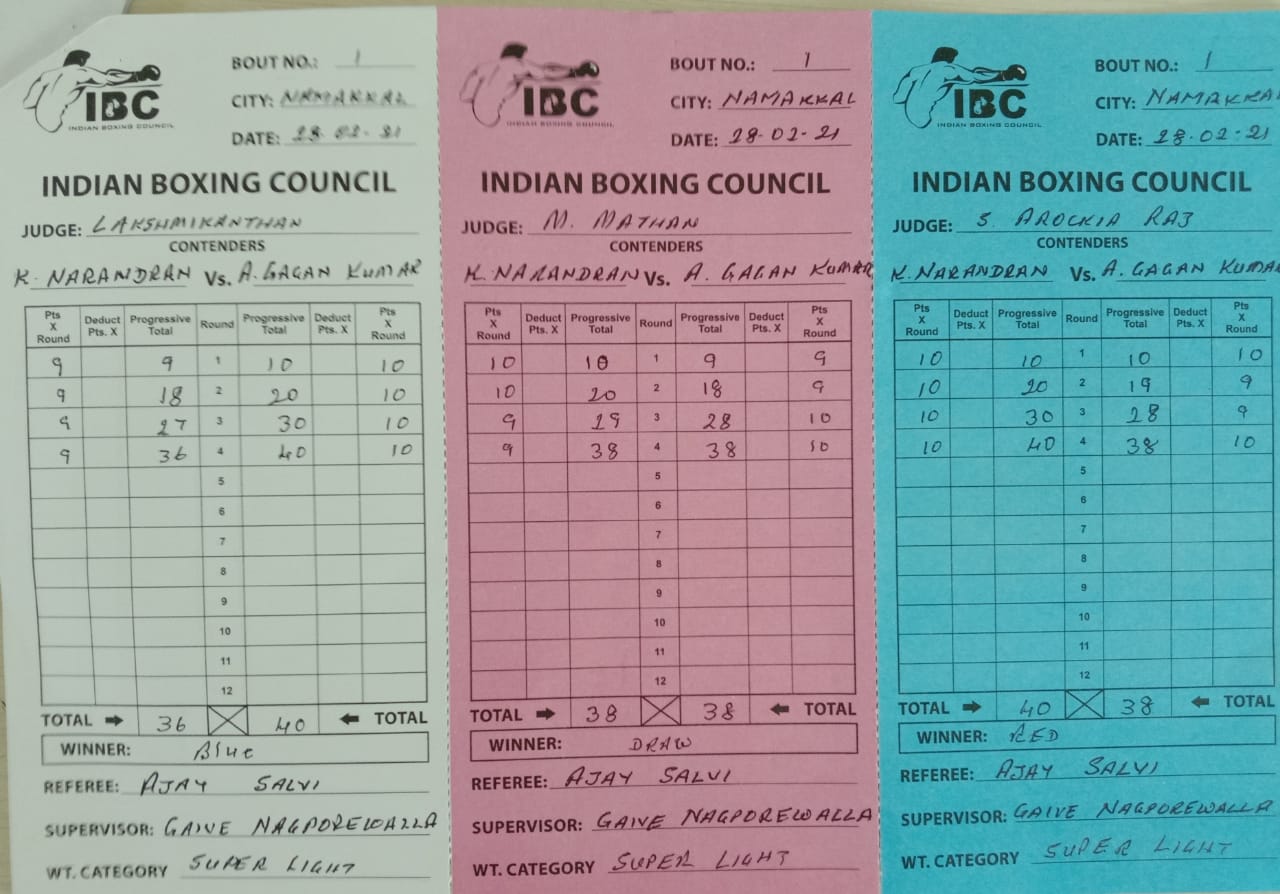 IBC
INDIAN BOXING COUNCIL
BOUT NO.: 1
CITY: NAMAKKAL
DATE: 28.02.21
INDIAN BOXING COUNCIL
JUDGE: LAKSHMIKANTHAN
CONTENDERS
K. NARANDRAN Vs. A. GAGAN KUMAR
Pts X Round Deduct Pts. X Progressive Total Round Progressive Total Deduct Pts. X Pts X Round
9 9 1 10 10
9 18 2 20 10
9 27 3 30 10
9 36 4 40 10
5
6
7
8
9
10
11
12
TOTAL 36 40 TOTAL
WINNER: Blue
REFEREE: AJAY SALVI
SUPERVISOR: GAIVE NAGPOREWALLA
WT. CATEGORY SUPER LIGHT
IBC
INDIAN BOXING COUNCIL
BOUT NO.: 1
CITY: NAMAKKAL
DATE: 28.02.21
INDIAN BOXING COUNCIL
JUDGE: M. MATHAN
CONTENDERS
K. NARANDRAN Vs. A. GAGAN KUMAR
Pts X Round Deduct Pts. X Progressive Total Round Progressive Total Deduct Pts. X Pts X Round
10 10 1 9 9
10 20 2 18 9
9 29 3 28 10
9 38 4 38 10
5
6
7
8
9
10
11
12
TOTAL 38 38 TOTAL
WINNER: DRAW
REFEREE: AJAY SALVI
SUPERVISOR: GAIVE NAGPOREWALLA
WT. CATEGORY SUPER LIGHT
IBC
INDIAN BOXING COUNCIL
BOUT NO.: 1
CITY: NAMAKKAL
DATE: 28.02.21
INDIAN BOXING COUNCIL
JUDGE: S. AROCKIA RAJ
CONTENDERS
K. NARANDRAN Vs. A. GAGAN KUMAR
Pts X Round Deduct Pts. X Progressive Total Round Progressive Total Deduct Pts. X Pts X Round
10 10 1 10 10
10 20 2 19 9
10 30 3 28 9
10 40 4 38 10
5
6
7
8
9
10
11
12
TOTAL 40 38 TOTAL
WINNER: RED
REFEREE: AJAY SALVI
SUPERVISOR: GAIVE NAGPOREWALLA
WT. CATEGORY SUPER LIGHT